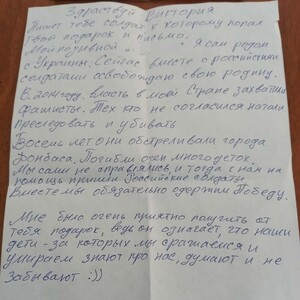 Здравствуй Виктория
Пишет тебе солдат к которому попал
твой подарок и письмо.
Мой позывной " " Я сам родом
с Украины. Сейчас вместе с российскими
солдатами освобождаю свою родину.
В 2014 году власть в моей Стране захватили
фашисты. Тех кто не согласился начали
преследовать и убивать
Восемь лет они обстреливали города
Донбаса. Погибли очень много деток.
Мы сами не справлялись, и тогда к нам на
помощь пришли Российские солдаты
Вместе мы обязательно одержим Победу.
Мне было очень приятно получить от
тебя подарок, ведь он означает, что наши
дети - за которых мы сражаемся и
умираем знают про нас, думают и не
забывают :))